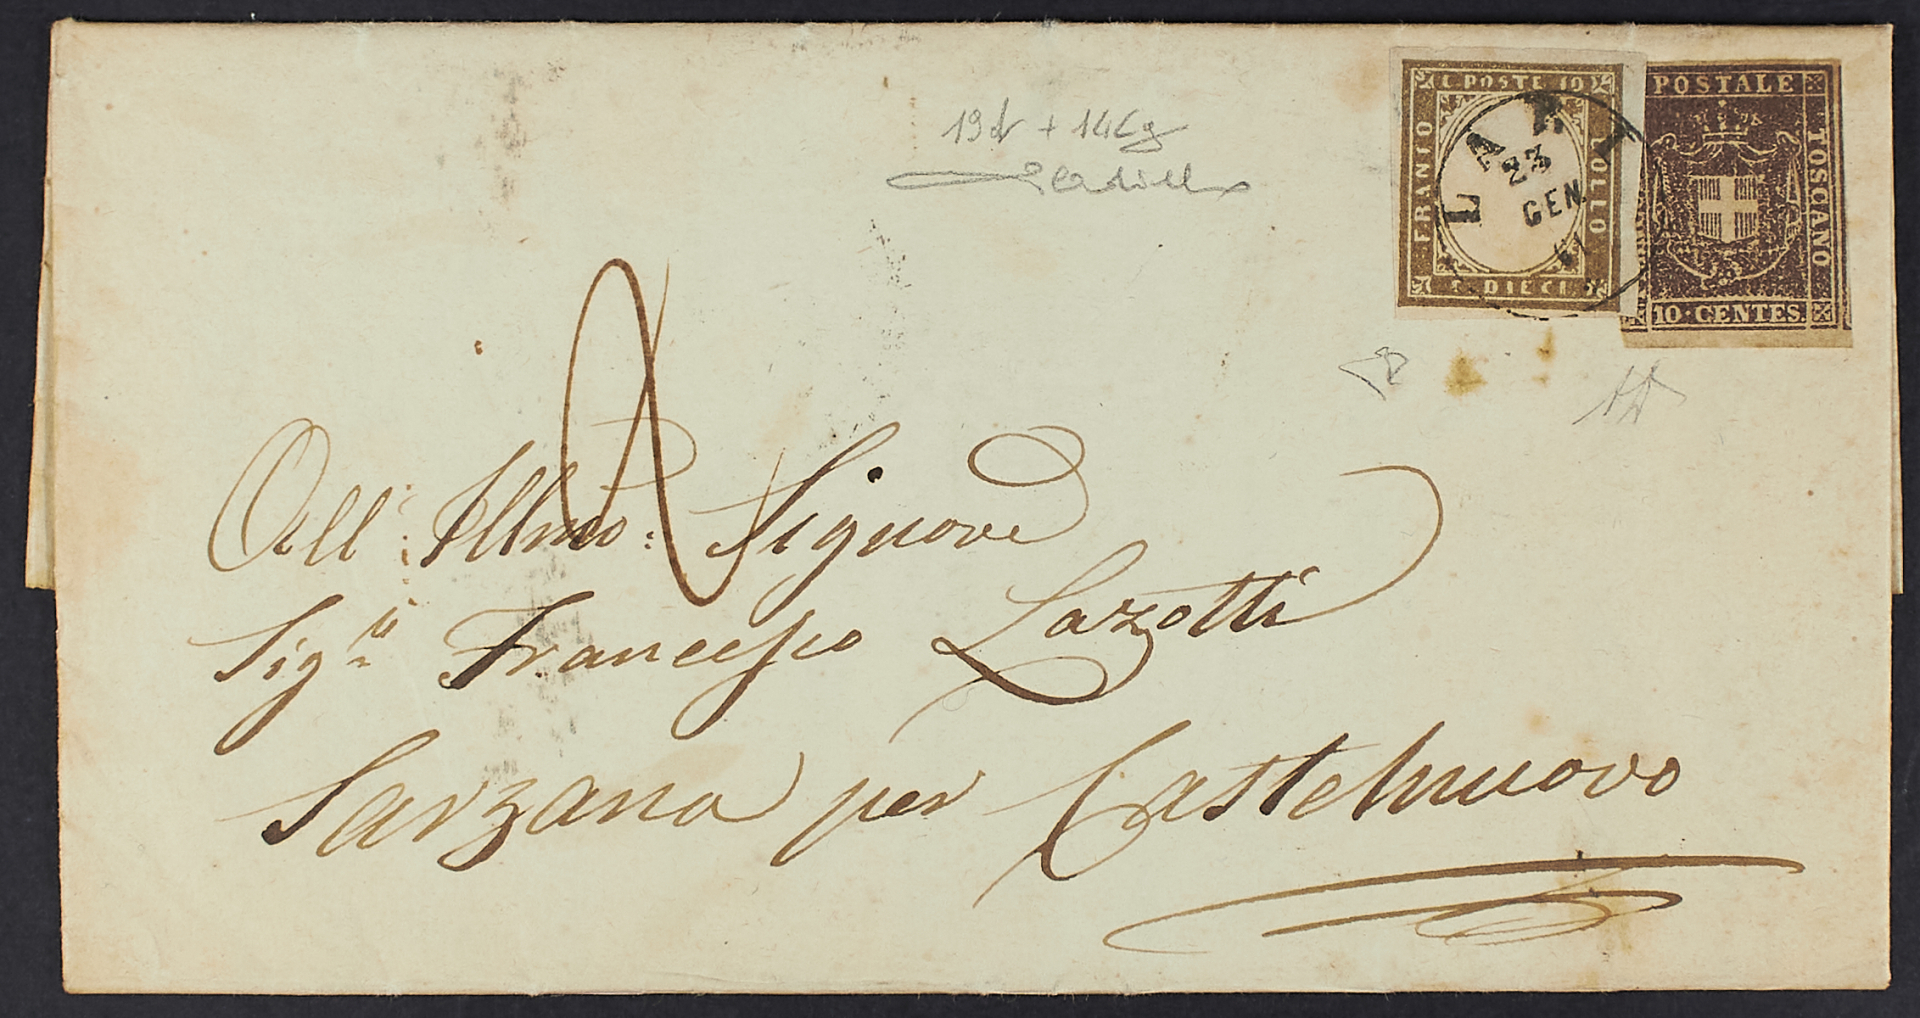 19d + 14Cg
C. POSTE 10
FRANCO
BOLLO
C. DIECI 10
LARI
23
GEN
61
POSTALE
TOSCANO
10 • CENTES.
All' Illmo: Signore
Sig.r Francesco Lazotti
Sarzana per Castelnuovo